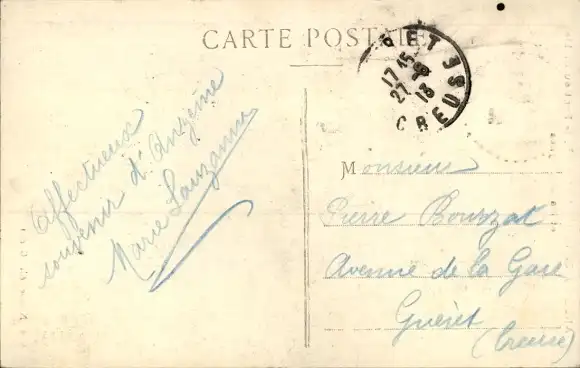 CARTE POSTALE
RET
17 15
27 8
18
CREUSE
Affectueux
souvenir d'Anzème
Marie Lauzanne
Monsieur
Pierre Bourzat
Avenue de la Gare
Guéret
(Creuse)